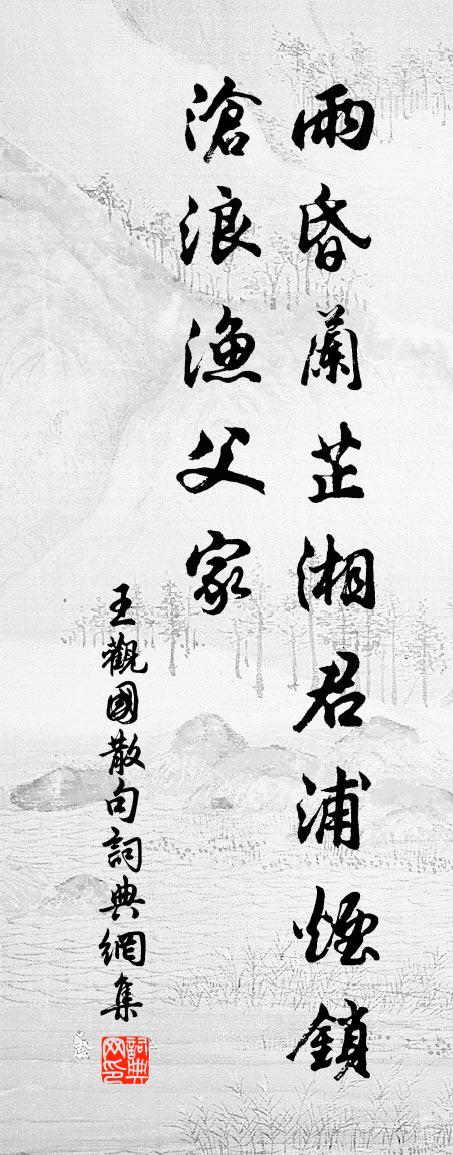 雨昏蘭芷湘君浦煙鎖
滄浪漁父家
王觀國散句詞典網集
詞典网印